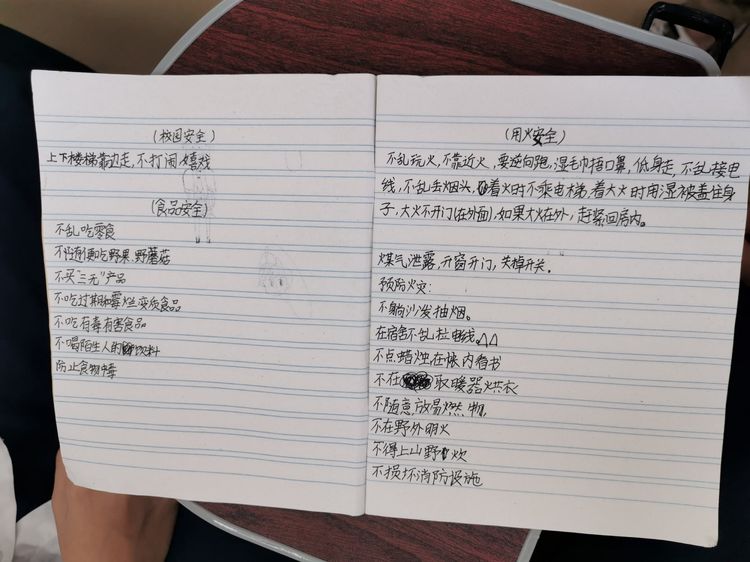 （校园安全）
上下楼梯靠边走，不打闹嬉戏
（食品安全）
不乱吃零食
不随便吃野果野蘑菇
不买“三元”产品
不吃过期和霉烂变质食品
不吃有毒有害食品
不喝陌生人的饮料
防止食物中毒
（用火安全）
不乱玩火，不靠近火，要逆向跑，湿毛巾捂口鼻，低身走，不乱接电
线，不乱丢烟头，着火时不乘电梯，着大火时用湿被盖住身
子，大火不开门（在外面），如果大火在外，赶紧回房内。
煤气泄露，开窗开门，关掉开关。
预防火灾：
不躺沙发抽烟。
在宿舍不乱拉电线。
不点蜡烛在帐内看书
不在取暖器烘衣
不随意放易燃物，
不在野外明火
不得上山野炊
不损坏消防设施